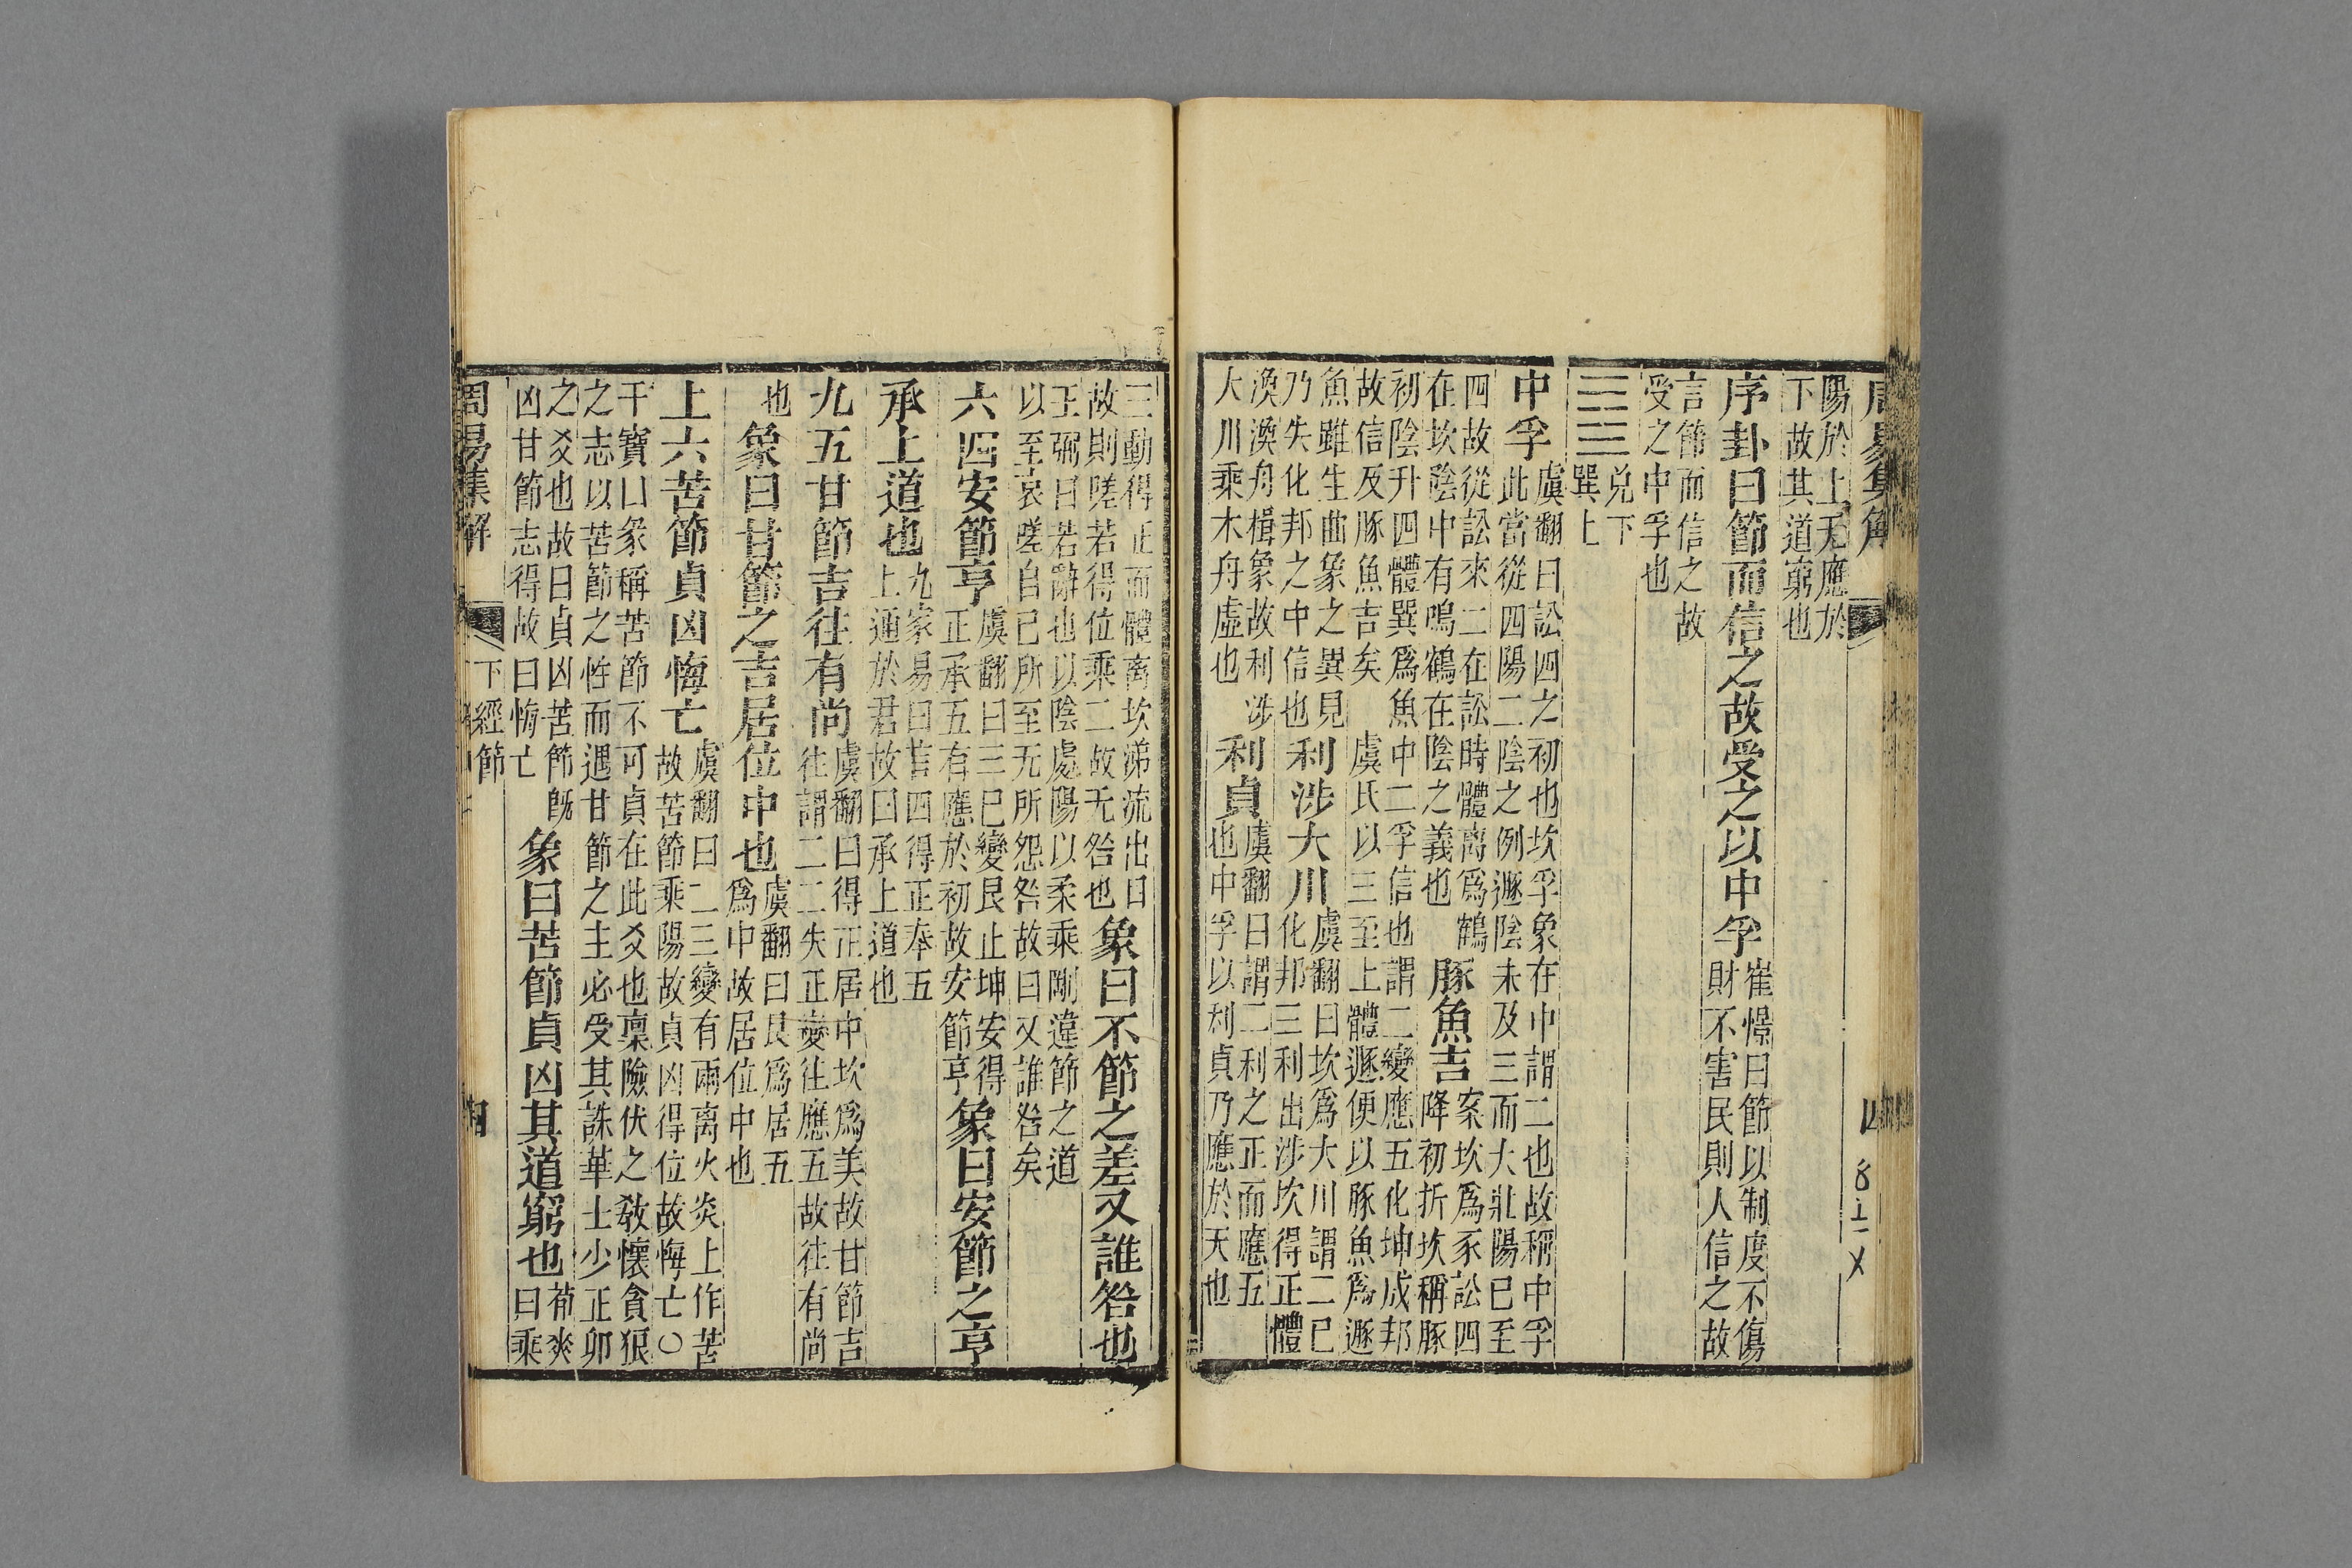 周易集解　四
陽於上无應於下故其道窮也
序卦曰節而信之故受之以中孚崔憬曰節以制度不傷財不害民則人信之故
言節而信之故受之中孚也
䷼兌下巽上
中孚虞翻曰訟四之初也坎孚象在中謂二也故稱中孚此當從四陽二陰之例遯陰未及三而大壯陽已至
四故從訟來二在訟時體离爲鶴在坎陰中有鳴鶴在陰之義也豚魚吉案坎爲豕訟四降初折坎稱豚
初陰升四體巽爲魚中二孚信也謂二變應五化坤成邦故信及豚魚吉矣虞氏以三至上體遯便以豚魚爲遯
魚雖生曲象之異見乃失化邦之中信也利涉大川虞翻曰坎爲大川謂二已化邦三利出涉坎得正體
渙渙舟楫象故利涉大川乘木舟虛也利貞虞翻曰謂二利之正而應五也中孚以利貞乃應於天也
三動得正而體离坎涕流出目故則嗟若得位乘二故无咎也象曰不節之差又誰咎也
王弼曰若辭也以陰處陽以柔乘剛違節之道以至哀嗟自已所至无所怨咎故曰又誰咎矣
六四安節亨虞翻曰三已變艮止坤安得正承五有應於初故安節亨象曰安節之亨
承上道也九家易曰言四得正奉五上通於君故曰承上道也
九五甘節吉往有尚虞翻曰得正居中坎爲美故甘節吉往謂二二失正變往應五故往有尚
也象曰甘節之吉居位中也虞翻曰艮爲居五爲中故居位中也
上六苦節貞凶悔亡虞翻曰二三變有兩离火炎上作苦故苦節乘陽故貞凶得位故悔亡○
干寶曰彖稱苦節不可貞在此爻也稟險伏之敎懷貪狠之志以苦節之性而遇甘節之主必受其誅華士少正卯
之爻也故曰貞凶苦節旣凶甘節志得故曰悔亡象曰苦節貞凶其道窮也荀爽曰乘
周易集解　下經節　四